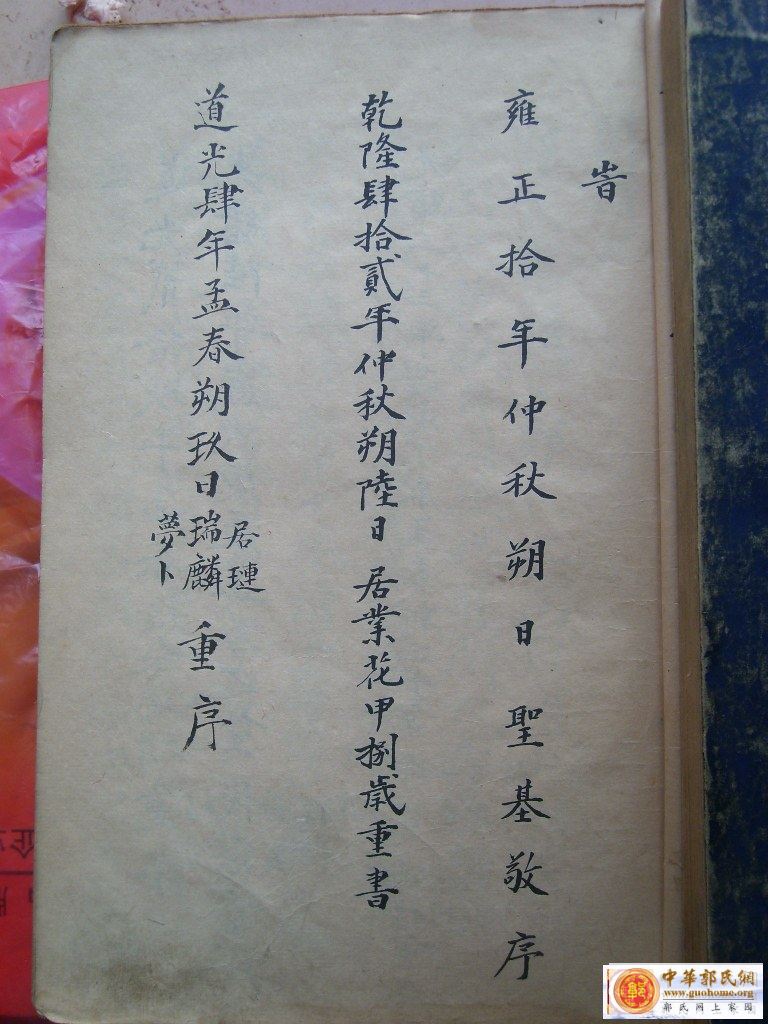 旹
雍正拾年仲秋朔日聖基敬序
乾隆肆拾貳年仲秋朔陸日居業花甲捌歲重書
道光肆年孟春朔玖日居璉瑞麟夢卜重序
中華郭氏網
www.guohome.org
郭氏网上家园